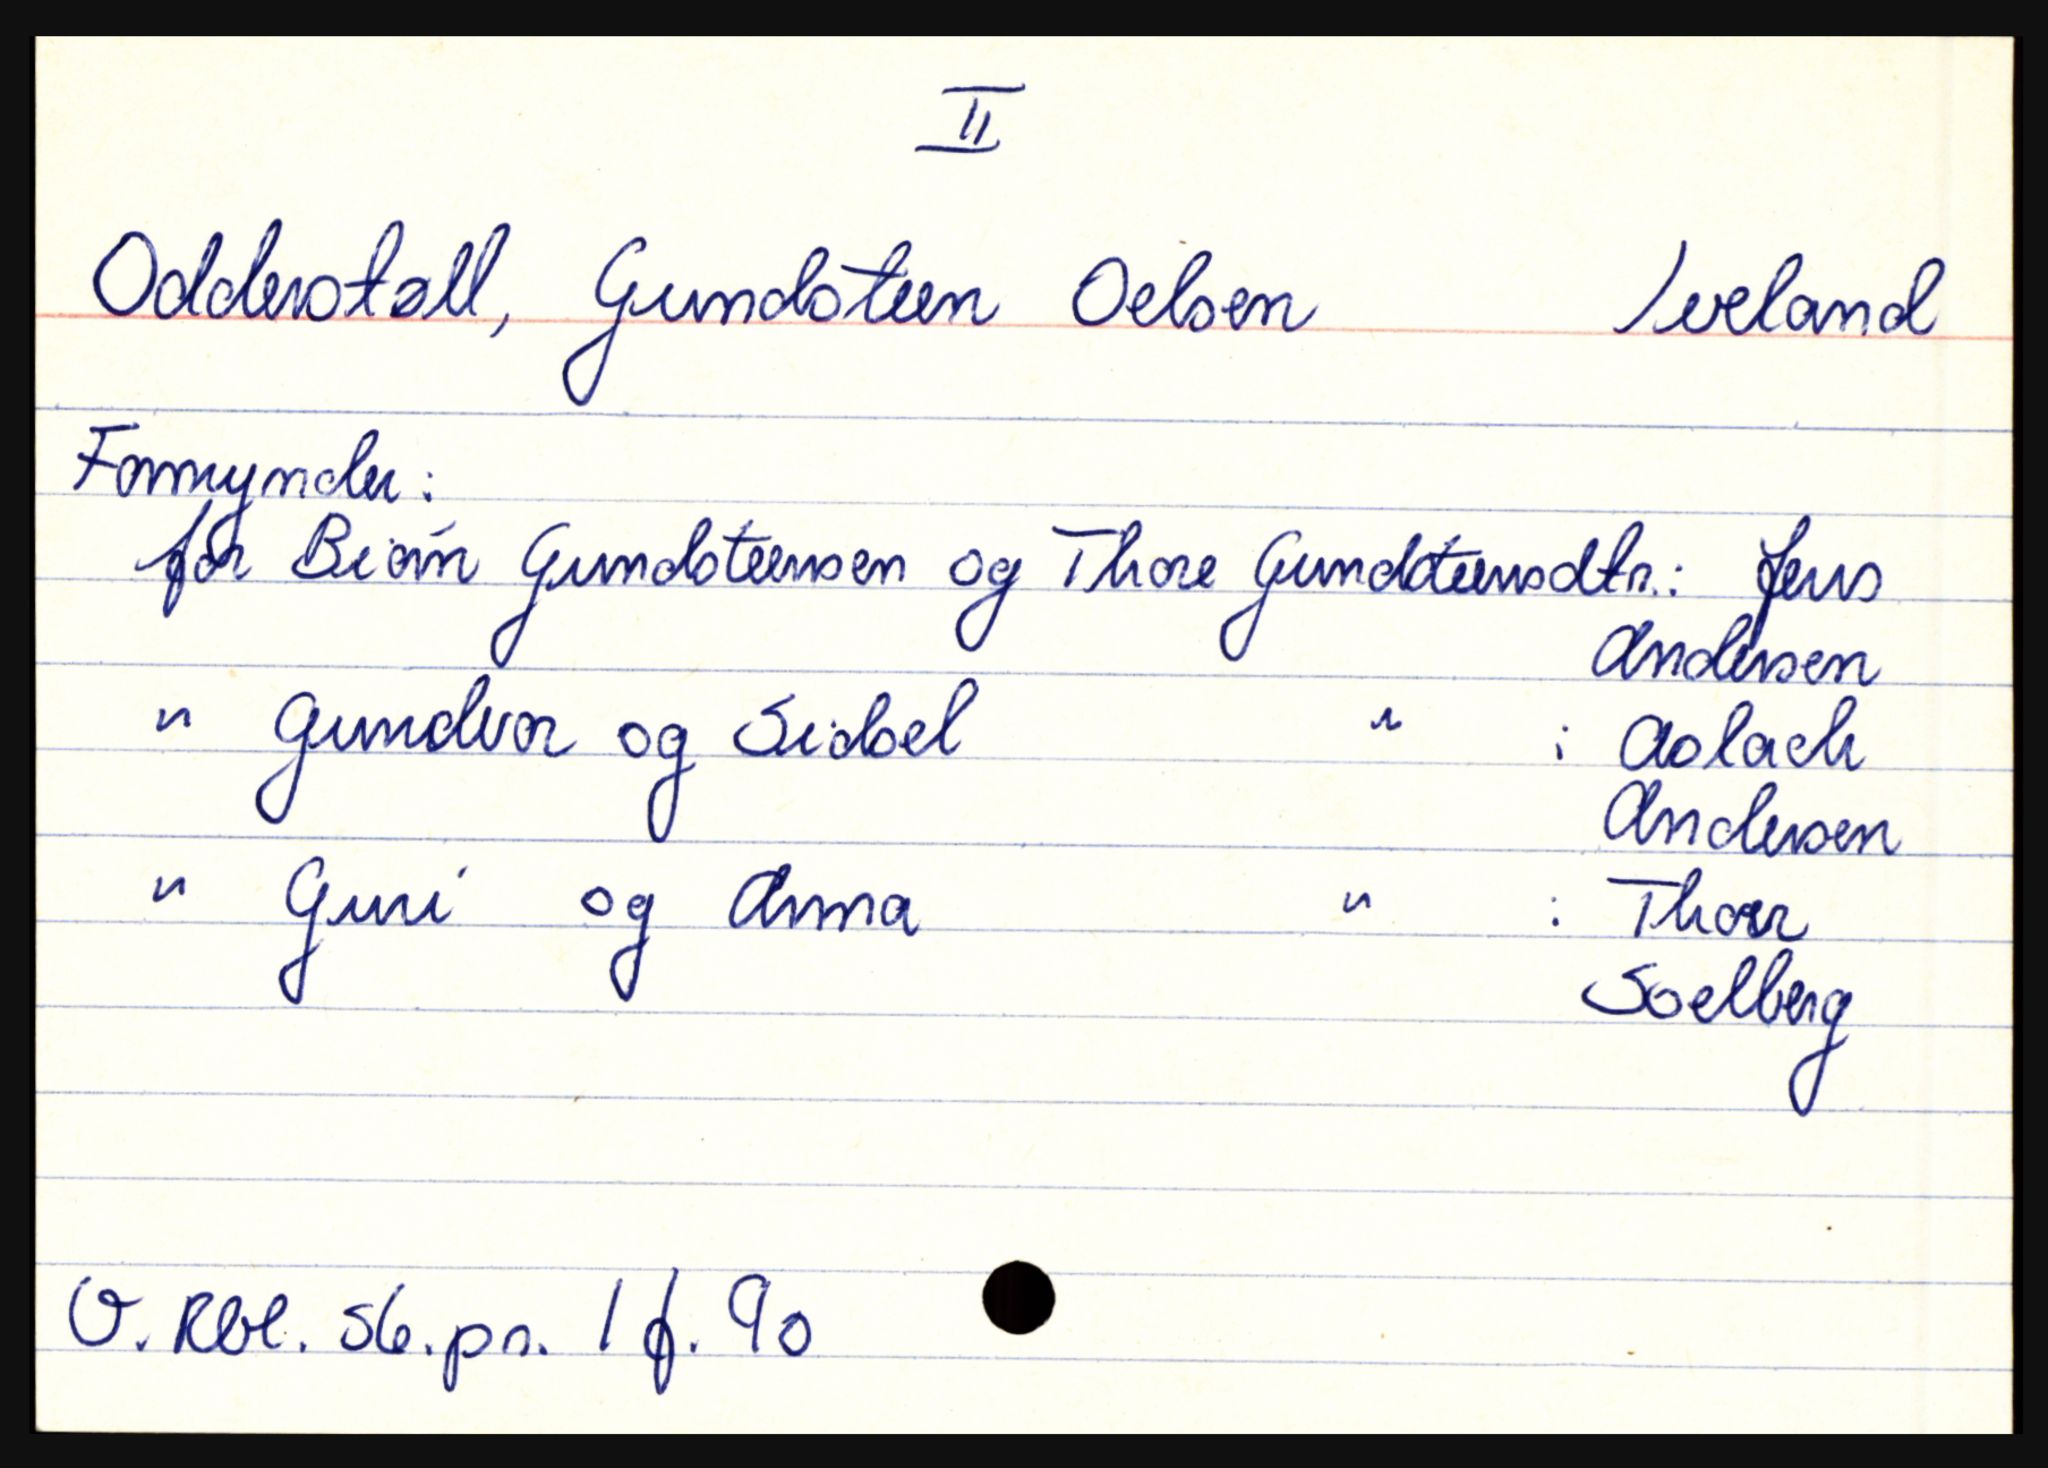 II
Odderstøll, Gundsteen Oelsen Iveland
Formynder:
for Biørn Gundsteensen og Thore Gundsteensdtr.: Jens
Andersen
" Gundvor og Sidsel " : Aslach
Andersen
" Guri og Anna " : Thoer
Soelberg
O. Rbl. sk.pr. 1 f. 90